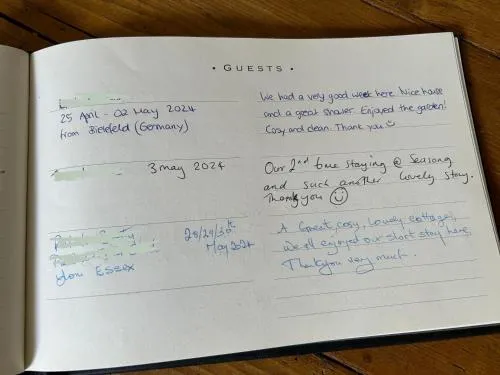 • GUESTS •
25 April - 02 May 2024
from Bielefeld (Germany)
We had a very good week here. Nice house
and a great shower. Enjoyed the garden!
Cosy and clean. Thank you ☺
3 may 2024
Our 2nd time staying @ Seasong
and such another lovely stay.
Thank you ☺
28/29/30th
May 2024
from ESSEX
A Great, cosy, lovely cottage,
we all enjoyed our short stay here.
Thankyou very much.